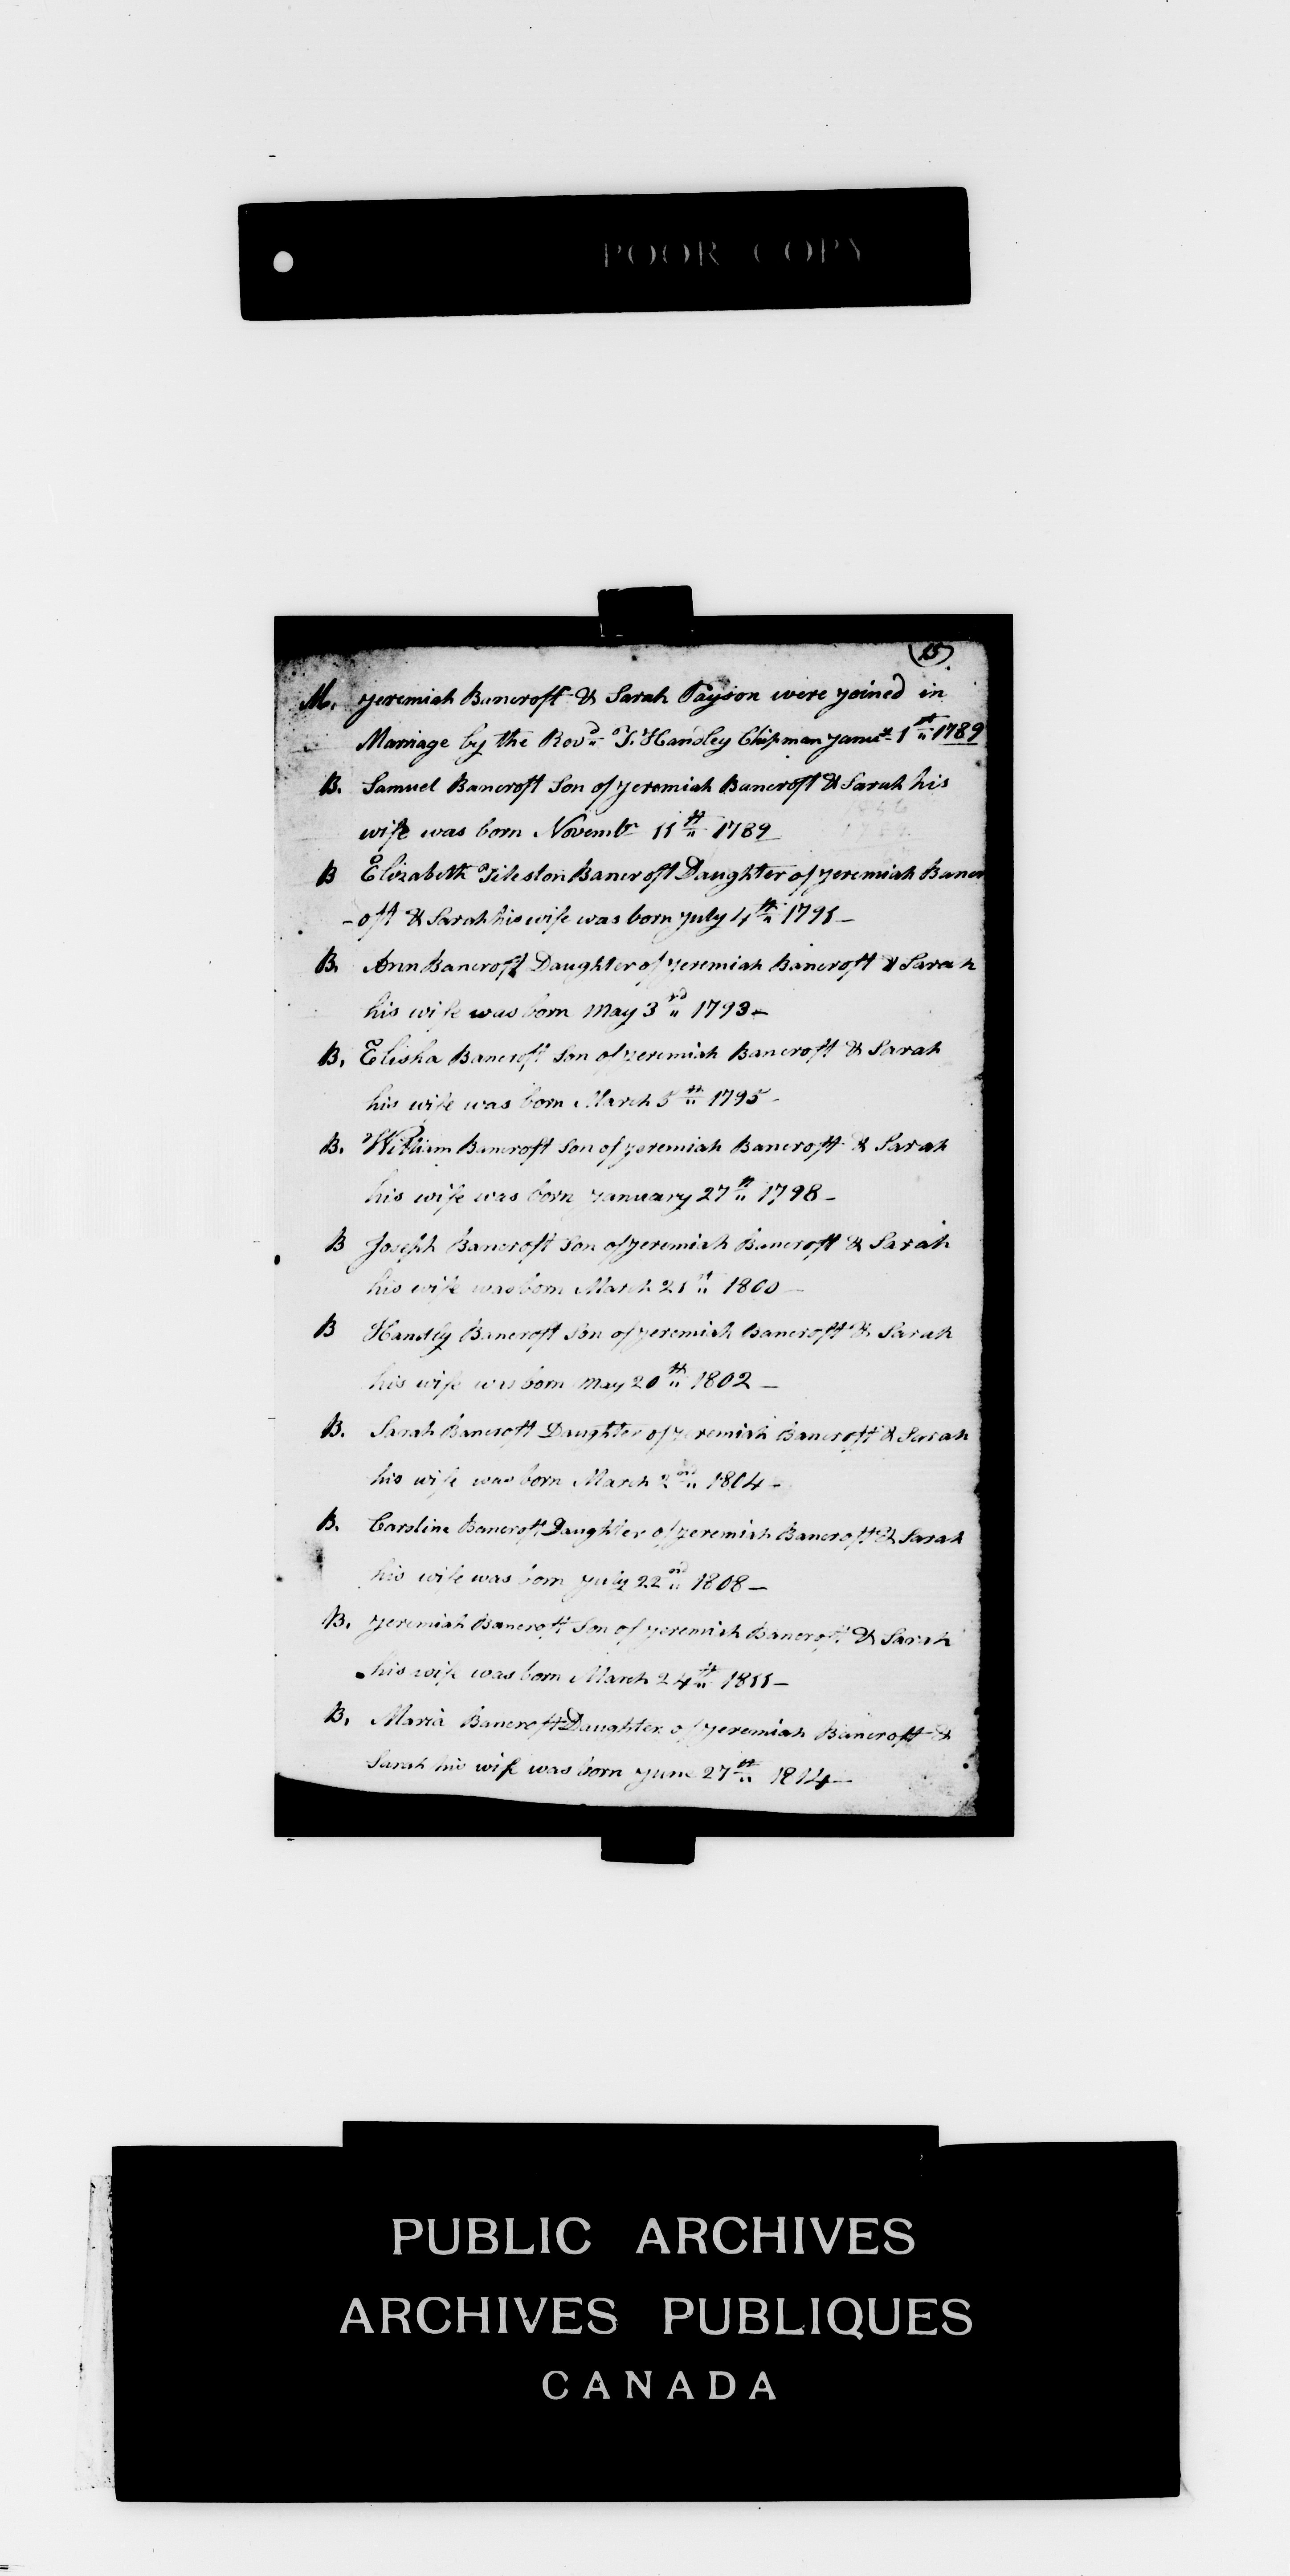 POOR COPY
(15)
M. Jeremiah Bancroft & Sarah Payson were joined in
Marriage by the Revd. T. Handley Chipman 1st 1789
B. Samuel Bancroft Son of Jeremiah Bancroft & Sarah his
wife was born Novembr 11th 1789
B Elizabeth Tileston Bancroft Daughter of Jeremiah Bancr
-oft & Sarah his wife was born July 4th 1791-
B. Ann Bancroft Daughter of Jeremiah Bancroft & Sarah
his wife was born May 3rd 1793-
B. Elisha Bancroft Son of Jeremiah Bancroft & Sarah
his wife was born March 5th 1795-
B. William Bancroft Son of Jeremiah Bancroft & Sarah
his wife was born January 27th 1798-
B Joseph Bancroft Son of Jeremiah Bancroft & Sarah
his wife was born March 21st 1800-
B Handly Bancroft Son of Jeremiah Bancroft & Sarah
his wife was born May 20th 1802-
B. Sarah Bancroft Daughter of Jeremiah Bancroft & Sarah
his wife was born March 2nd 1804-
B. Caroline Bancroft Daughter of Jeremiah Bancroft & Sarah
his wife was born July 22nd 1808-
B. Jeremiah Bancroft Son of Jeremiah Bancroft & Sarah
his wife was born March 24th 1811-
B. Maria Bancroft Daughter of Jeremiah Bancroft &
Sarah his wife was born June 27th 1814-
PUBLIC ARCHIVES
ARCHIVES PUBLIQUES
CANADA